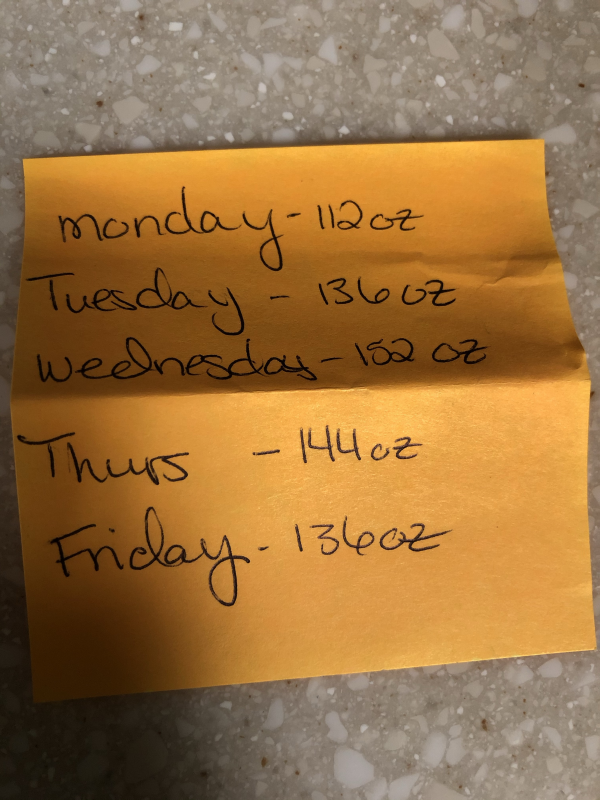 monday - 112 oz
Tuesday - 136 oz
Wednesday - 152 oz
Thurs - 144 oz
Friday - 136 oz